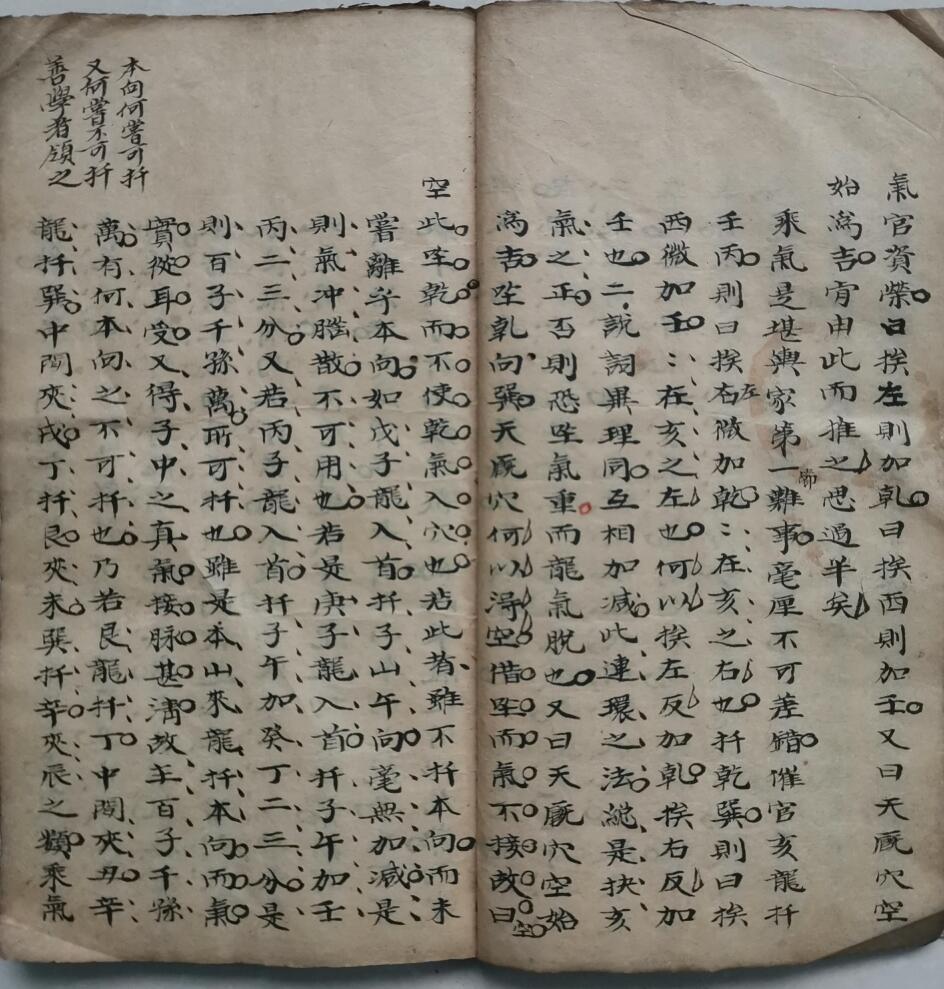 氣官資榮曰挨左則加乹曰挨西則加壬又曰天厩穴空
始為吉宵由此而推之思過半矣
乘氣是堪輿家第一難事毫厘不可差錯催官亥龍扦
壬丙則曰挨右微加乾〻在亥之右也扦乾巽則曰挨
左
西微加壬〻在亥之左也何以挨左反加乹挨右反加
壬也二説詞畢理同互相加减此連環之法緫是抉亥
氣之正否則恐坐氣重而龍氣脫也又曰天厩穴空始
為吉坐乹向巽天厩穴何以淂空借坐而氣不接故曰
空
空此坐乾而不使乾氣入穴也若此者雖不扦本向而未
嘗離乎本向如戊子龍入首扦子山午向毫無加减是
則氣冲腦散不可用也若是庚子龍入首扦子午加壬
丙二三分又若丙子龍入首扦子午加癸丁二三分是
則百子千孫萬所可扦也雖是本山來龍扦本向而氣
實從耳受又得子中之真氣接脉甚清故主百子千孫
萬有何本向之不可扦也乃若艮龍扦丁中閒夾丑辛
龍扦巽中閒夾戌丁扦艮夾未巽扦辛夾辰之類乘氣
本向何嘗可扦
又何嘗不可扦
善學者領之